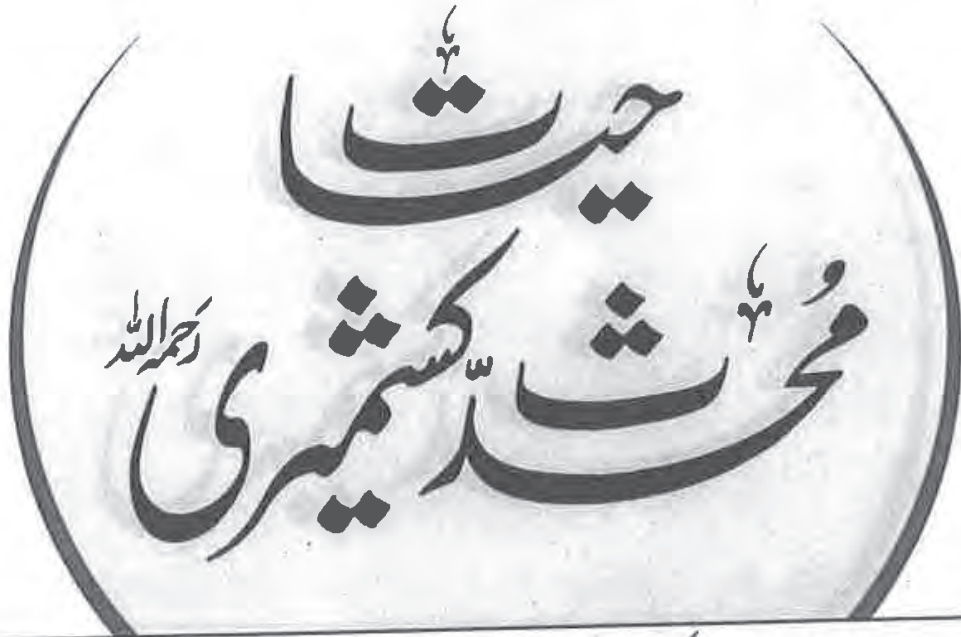 حیات
محدّث کشمیری رحمہ اللہ